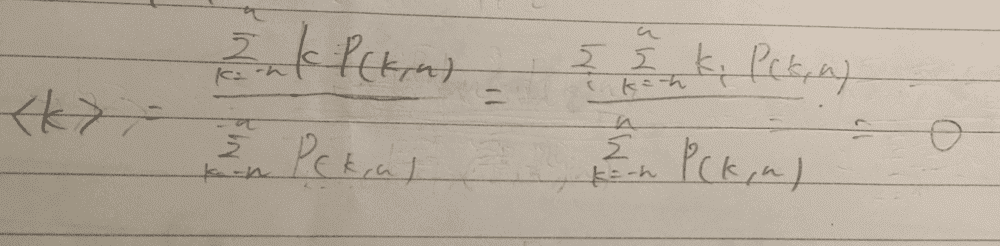 <k> = \frac{\sum_{k=-n}^{n} k P(k,n)}{\sum_{k=-n}^{n} P(k,n)} = \frac{\sum_{i} \sum_{k=-n}^{n} k_i P(k,n)}{\sum_{k=-n}^{n} P(k,n)} = 0